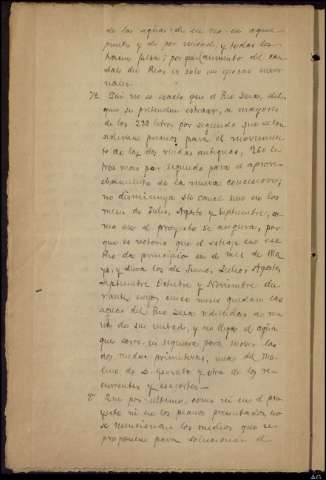 de las aguas de un rio en aquel
punto, y de por mitad, y todas las
hacen falta; por que el aumento del
dal del Rio, es solo en epocas inver
nales.
7º Que no es exacto que el Rio Seza, del
que se pretenden extraer, a mayores
de los 232 litros por segundo que se con
sideran precisos para el movimien
to de las dos ruedas antiguas, 260 li
tros mas por segundo para el aprove
chamiento de la nueva concesion,
no disminuya su cauce sino en los
meses de Julio, Agosto y Septiembre, co
mo en el proyecto se asegura, por
que es notorio que el estiaje en ese
Rio da principio en el mes de Ma
yo, y dura los de Junio, Julio, Agosto,
Septiembre Octubre y Noviembre du
rante cuyos meses quedan las
aguas del Rio Seza reducidas a me
nos de su mitad, y no llega el agua
que corre, ni siquiera para mover las
dos ruedas primitivas, una del Mo
lino de D. Gerardo y otra de los re
currentes y
8º Que por ultimo, como ni en el pro
yecto ni en los planos presentados, no
se mencionan los medios que se
proponen para solucionar el